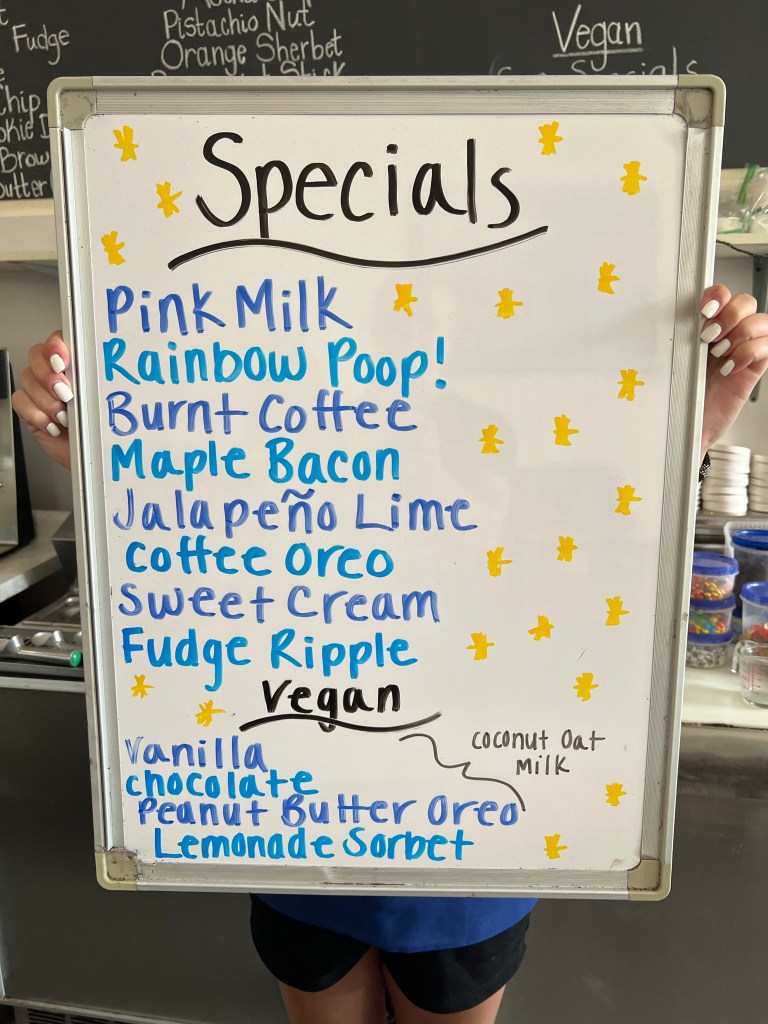 Fudge
Chip
Brow
Pistachio Nut
Orange Sherbet
Vegan
Specials
Specials
Pink Milk
Rainbow Poop!
Burnt Coffee
Maple Bacon
Jalapeño Lime
Coffee Oreo
Sweet Cream
Fudge Ripple
Vegan
Vanilla
chocolate
Peanut Butter Oreo
Lemonade Sorbet
coconut Oat
Milk